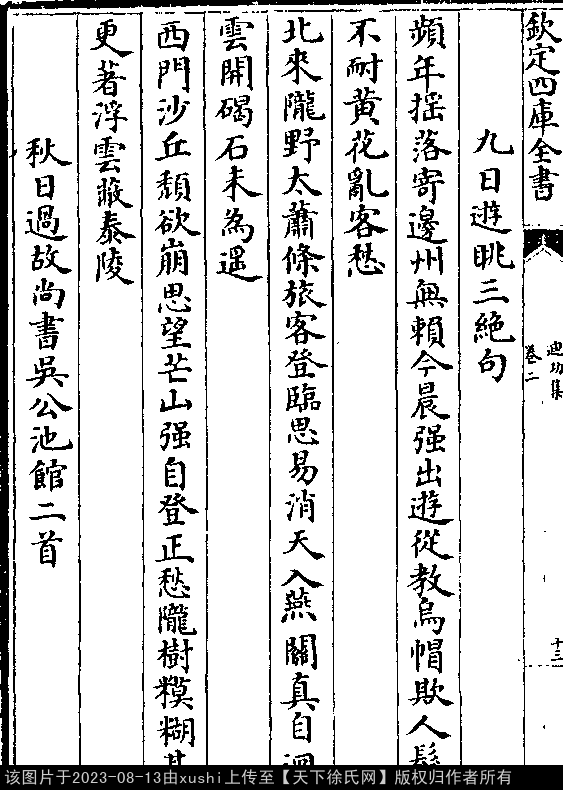 欽定四庫全書
迪功集
卷二
十三
九日遊眺三絶句
頻年揺落寄邊州無賴今晨强出遊從教烏帽欺人髩
不耐黄花亂客愁
北來隴野太蕭條旅客登臨思易消天入燕關真自迥
雲開碣石未為遥
西門沙丘頽欲崩思望芒山强自登正愁隴樹糢糊甚
更著浮雲蔽泰陵
秋日過故尚書吳公池館二首
该图片于2023-08-13由xushi上传至【天下徐氏网】版权归作者所有